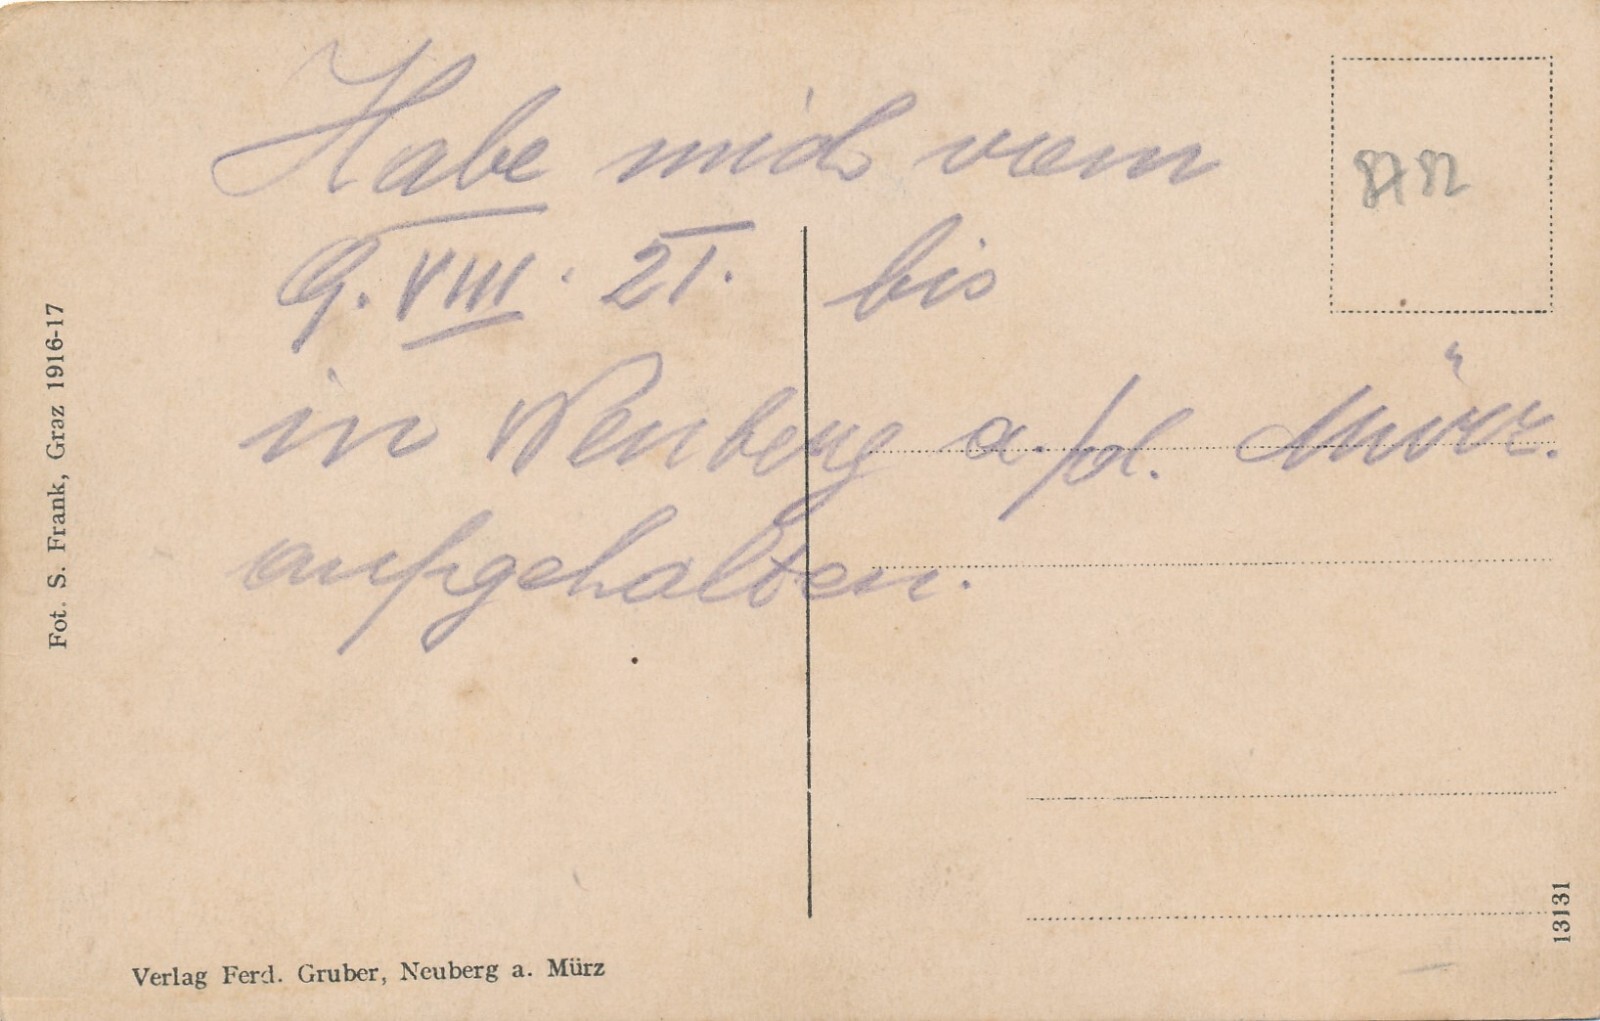 Habe mich vom
9. VIII. 21. bis
in Neuberg a./d. Mürz.
aufgehalten.
8782
Fot. S. Frank, Graz 1916-17
Verlag Ferd. Gruber, Neuberg a. Mürz
13131